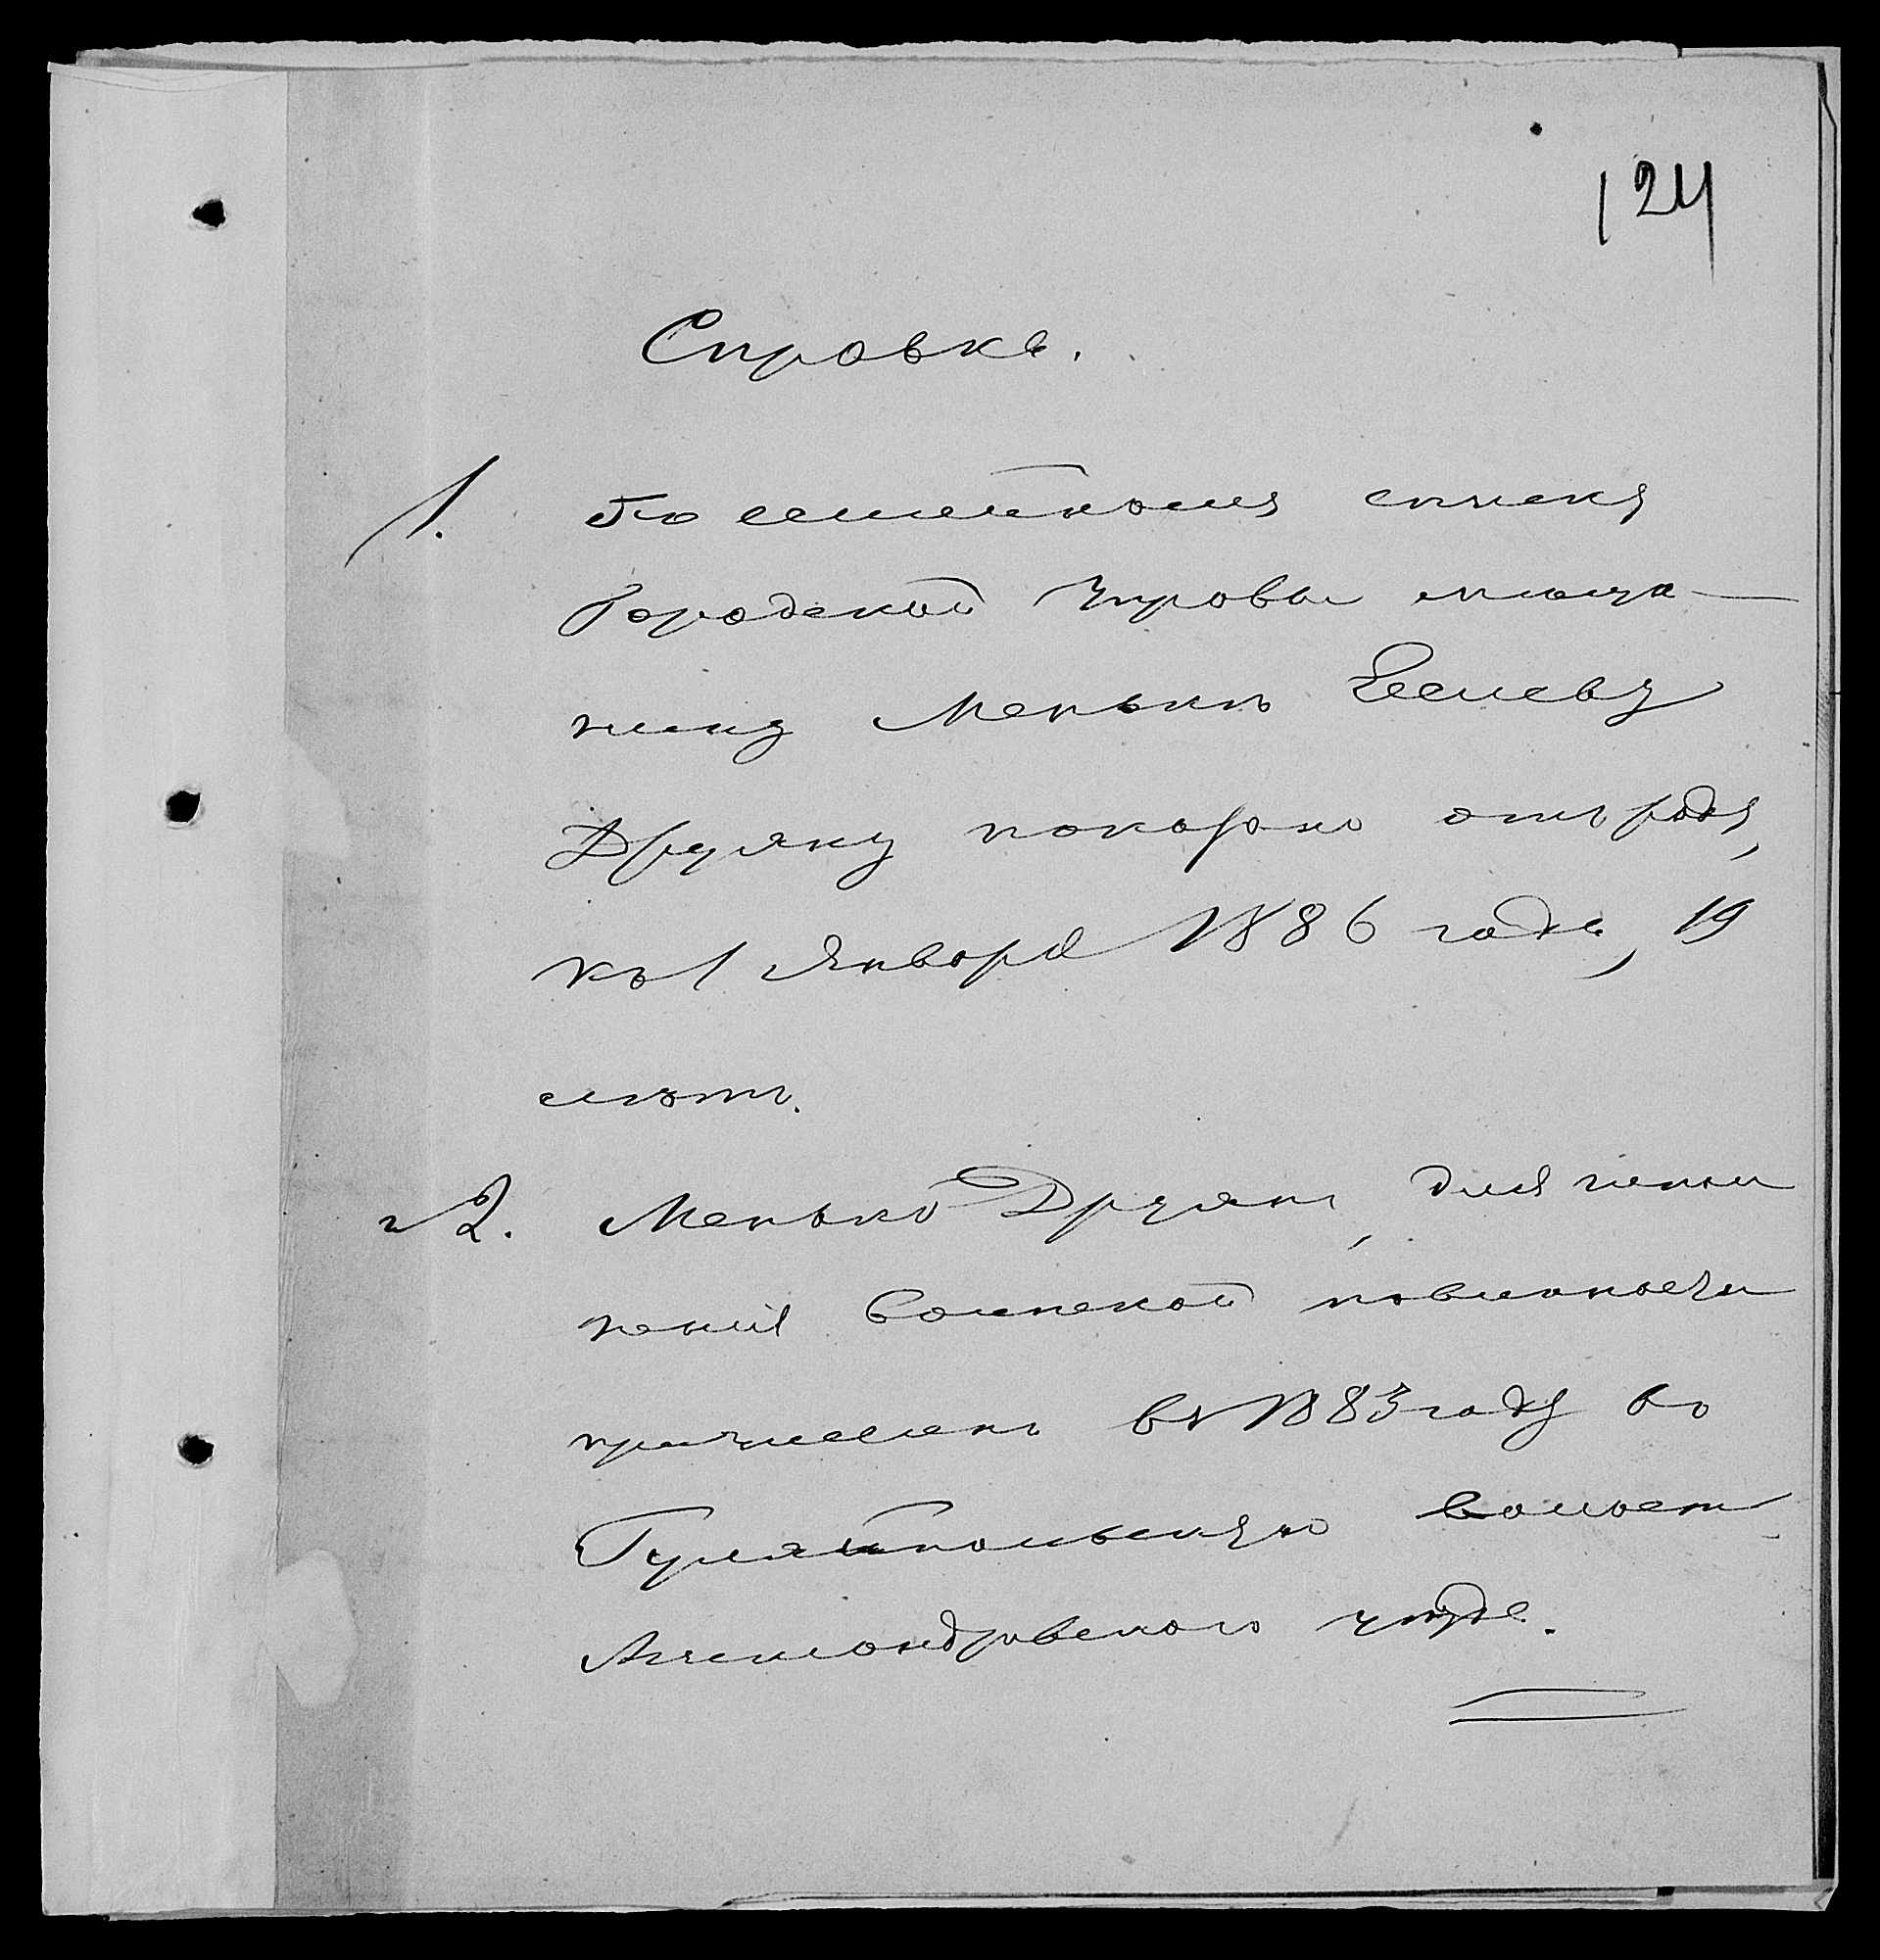 124
Справка.
1. По семейному списку
Городской Управы мѣща-
нину Менькѣ Іоселеву
Друяну показано отъ роду,
къ 1 Января 1886 года, 19
лѣтъ.
2. Менько Друянъ, для испол
ненія воинской повинности
причисленъ въ 1883 году въ
Гуляйпольскую волость
Александровскаго уѣзда.